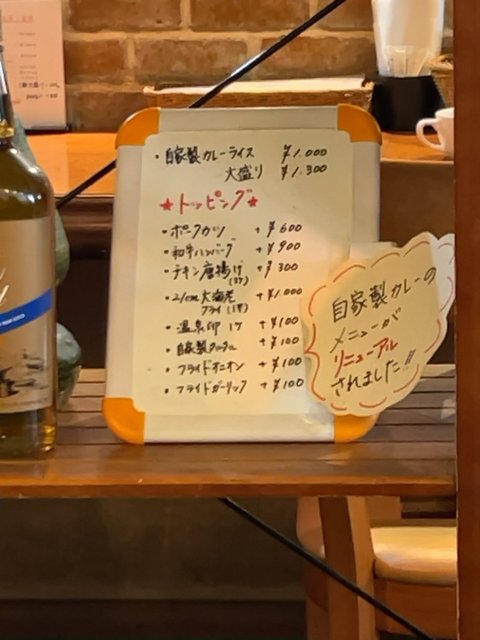 ・自家製カレーライス ¥1.000
大盛り ¥1.300
★トッピング★
・ポークカツ +¥600
・和牛ハンバーグ +¥900
・チキン唐揚げ +¥300
・21cm大海老 +¥1.000
フライ(1本)
・温泉卵 1ヶ +¥100
・自家製タルタル +¥100
・フライドオニオン +¥100
・フライドガーリック +¥100
自家製カレーの
メニューが
リニューアル
されました!!